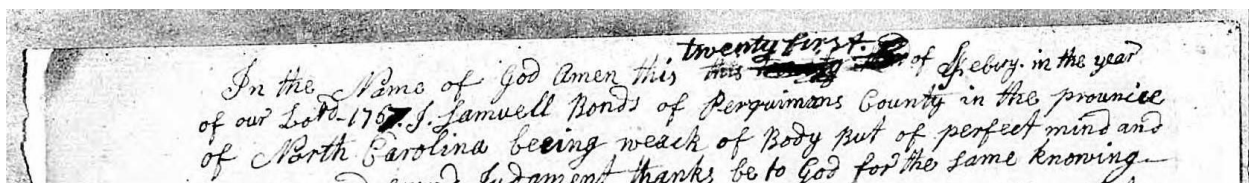 twenty first.
In the Name of God Amen this this of Febry. in the year
of our Lord 1767. I. Samuell Bonds of Perquimans County in the prounice
of North Carolina beeing weack of Body But of perfect mind and
Judament thanks be to God for the same knowing